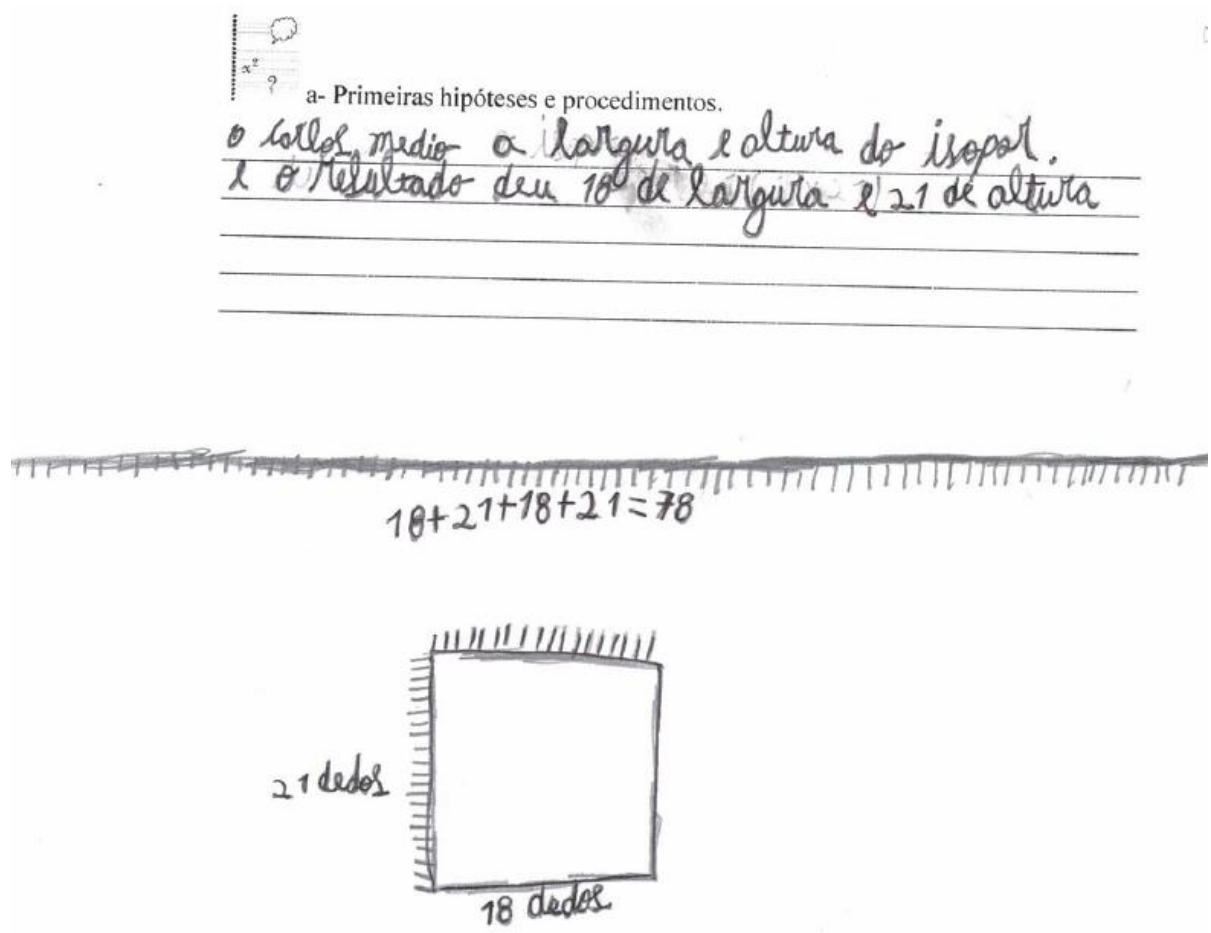 x²
?
a- Primeiras hipóteses e procedimentos.
o Carlos medio a largura e altura do isopor.
e o resultado deu 18 de largura e 21 de altura
18+21+18+21=78
21 dedos
18 dedos